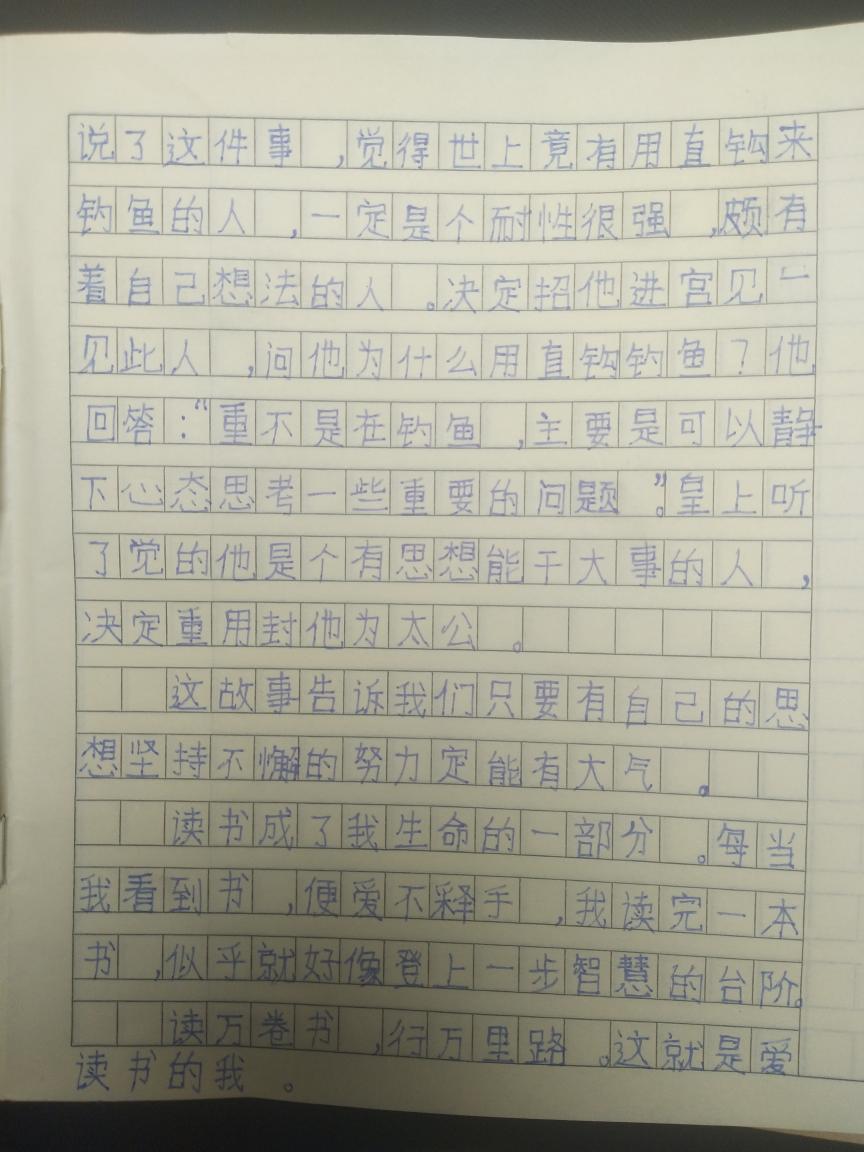 说了这件事，觉得世上竟有用直钩来
钓鱼的人，一定是个耐性很强，颇有
着自己想法的人。决定招他进宫见一
见此人，问他为什么用直钩钓鱼？他
回答：“重不是在钓鱼，主要是可以静
下心态思考一些重要的问题”。皇上听
了觉的他是个有思想能干大事的人，
决定重用封他为太公。
这故事告诉我们只要有自己的思
想坚持不懈的努力定能有大气。
读书成了我生命的一部分。每当
我看到书，便爱不释手，我读完一本
书，似乎就好像登上一步智慧的台阶。
读万卷书，行万里路。这就是爱
读书的我。